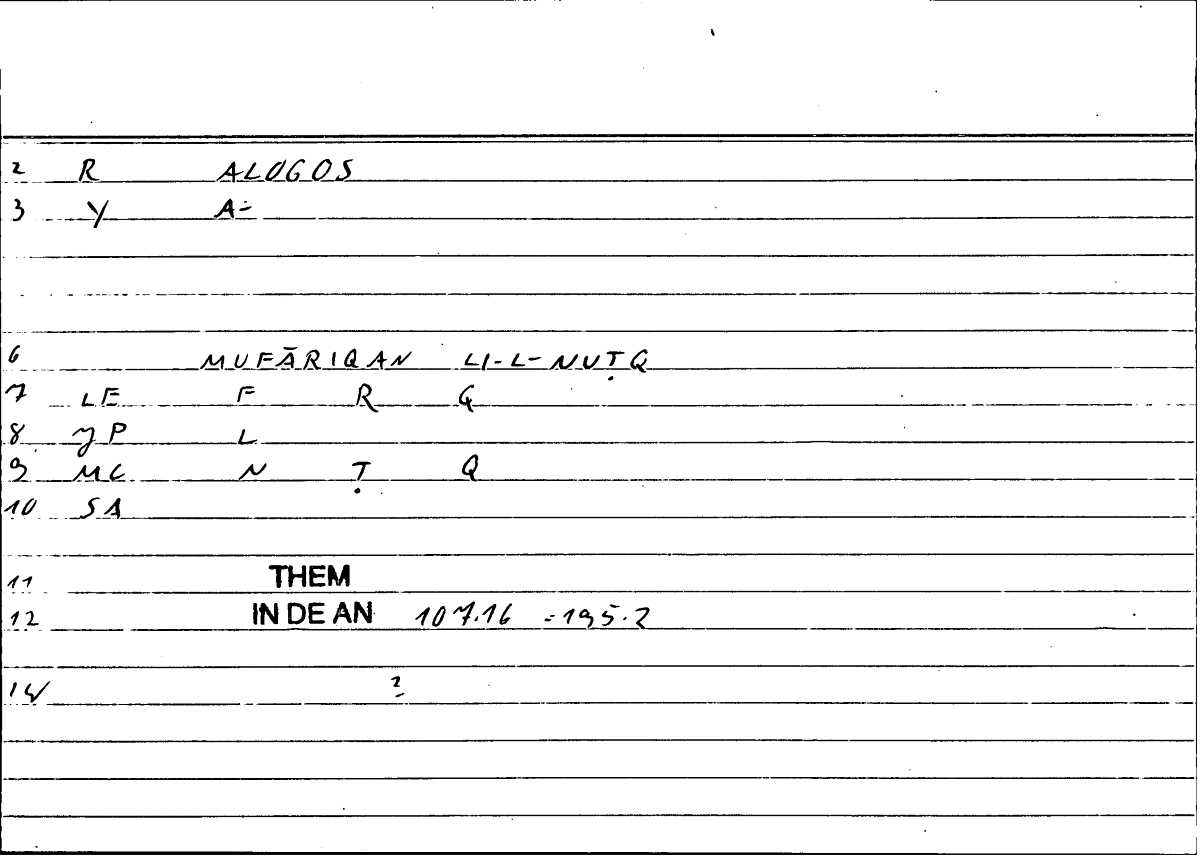 2 R ALOGOS
3 Y A-
6 MUFĀRIQAN LI-L-NUṬQ
7 LE F R Q
8 JP L
9 MC N Ṭ Q
10 SA
11 THEM
12 IN DE AN 107.16 - 195.2
14 2